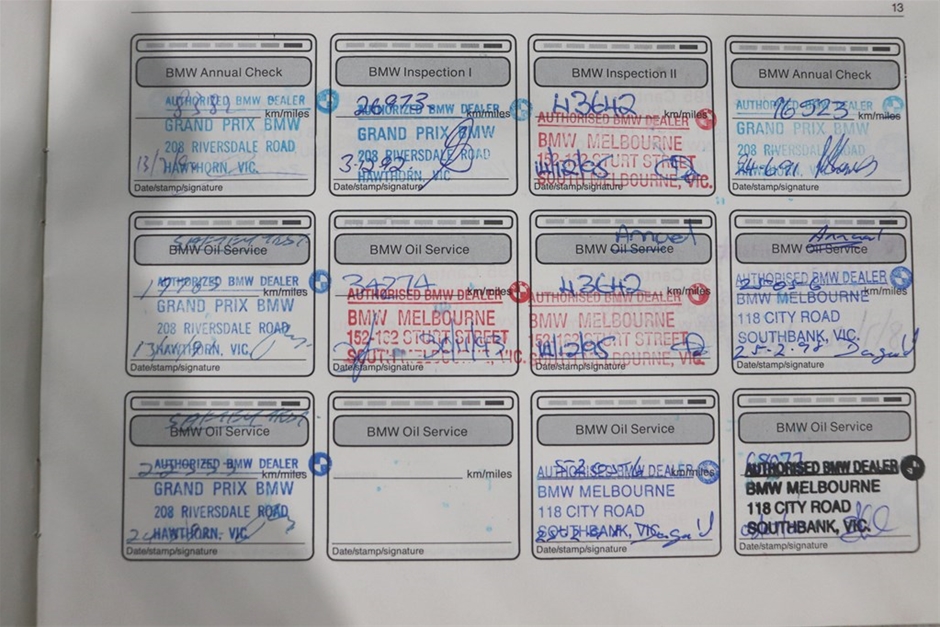 13
BMW Annual Check
AUTHORIZED BMW DEALER
km/miles
GRAND PRIX BMW
208 RIVERSDALE ROAD
HAWTHORN, VIC.
Date/stamp/signature
BMW Inspection I
26973
AUTHORIZED BMW DEALER
km/miles
GRAND PRIX BMW
208 RIVERSDALE ROAD
HAWTHORN, VIC.
Date/stamp/signature
BMW Inspection II
43642
AUTHORISED BMW DEALER
km/miles
BMW MELBOURNE
152-162 STURT STREET
SOUTH MELBOURNE, VIC.
Date/stamp/signature
BMW Annual Check
16323
AUTHORIZED BMW DEALER
km/miles
GRAND PRIX BMW
208 RIVERSDALE ROAD
HAWTHORN, VIC.
Date/stamp/signature
BMW Oil Service
AUTHORIZED BMW DEALER
km/miles
GRAND PRIX BMW
208 RIVERSDALE ROAD
HAWTHORN, VIC.
Date/stamp/signature
BMW Oil Service
34274
AUTHORISED BMW DEALER
km/miles
BMW MELBOURNE
152-162 STURT STREET
SOUTH MELBOURNE, VIC.
Date/stamp/signature
Annual
BMW Oil Service
43642
AUTHORISED BMW DEALER
km/miles
BMW MELBOURNE
152-162 STURT STREET
SOUTH MELBOURNE, VIC.
Date/stamp/signature
Annual
BMW Oil Service
AUTHORISED BMW DEALER
km/miles
BMW MELBOURNE
118 CITY ROAD
SOUTHBANK, VIC.
25-2-98
Date/stamp/signature
BMW Oil Service
AUTHORIZED BMW DEALER
km/miles
GRAND PRIX BMW
208 RIVERSDALE ROAD
HAWTHORN, VIC.
Date/stamp/signature
BMW Oil Service
km/miles
Date/stamp/signature
BMW Oil Service
AUTHORISED BMW DEALER
km/miles
BMW MELBOURNE
118 CITY ROAD
SOUTHBANK, VIC.
Date/stamp/signature
BMW Oil Service
AUTHORISED BMW DEALER
BMW MELBOURNE
118 CITY ROAD
SOUTHBANK, VIC.
Date/stamp/signature